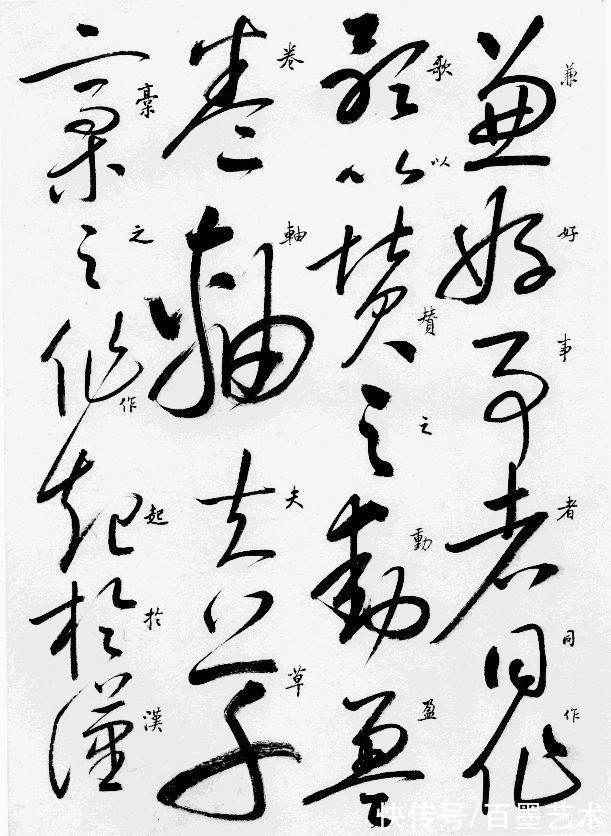 兼好事者同作
歌以贊之動盈
卷軸夫草
稾之作起於漢
快传号/百墨艺术